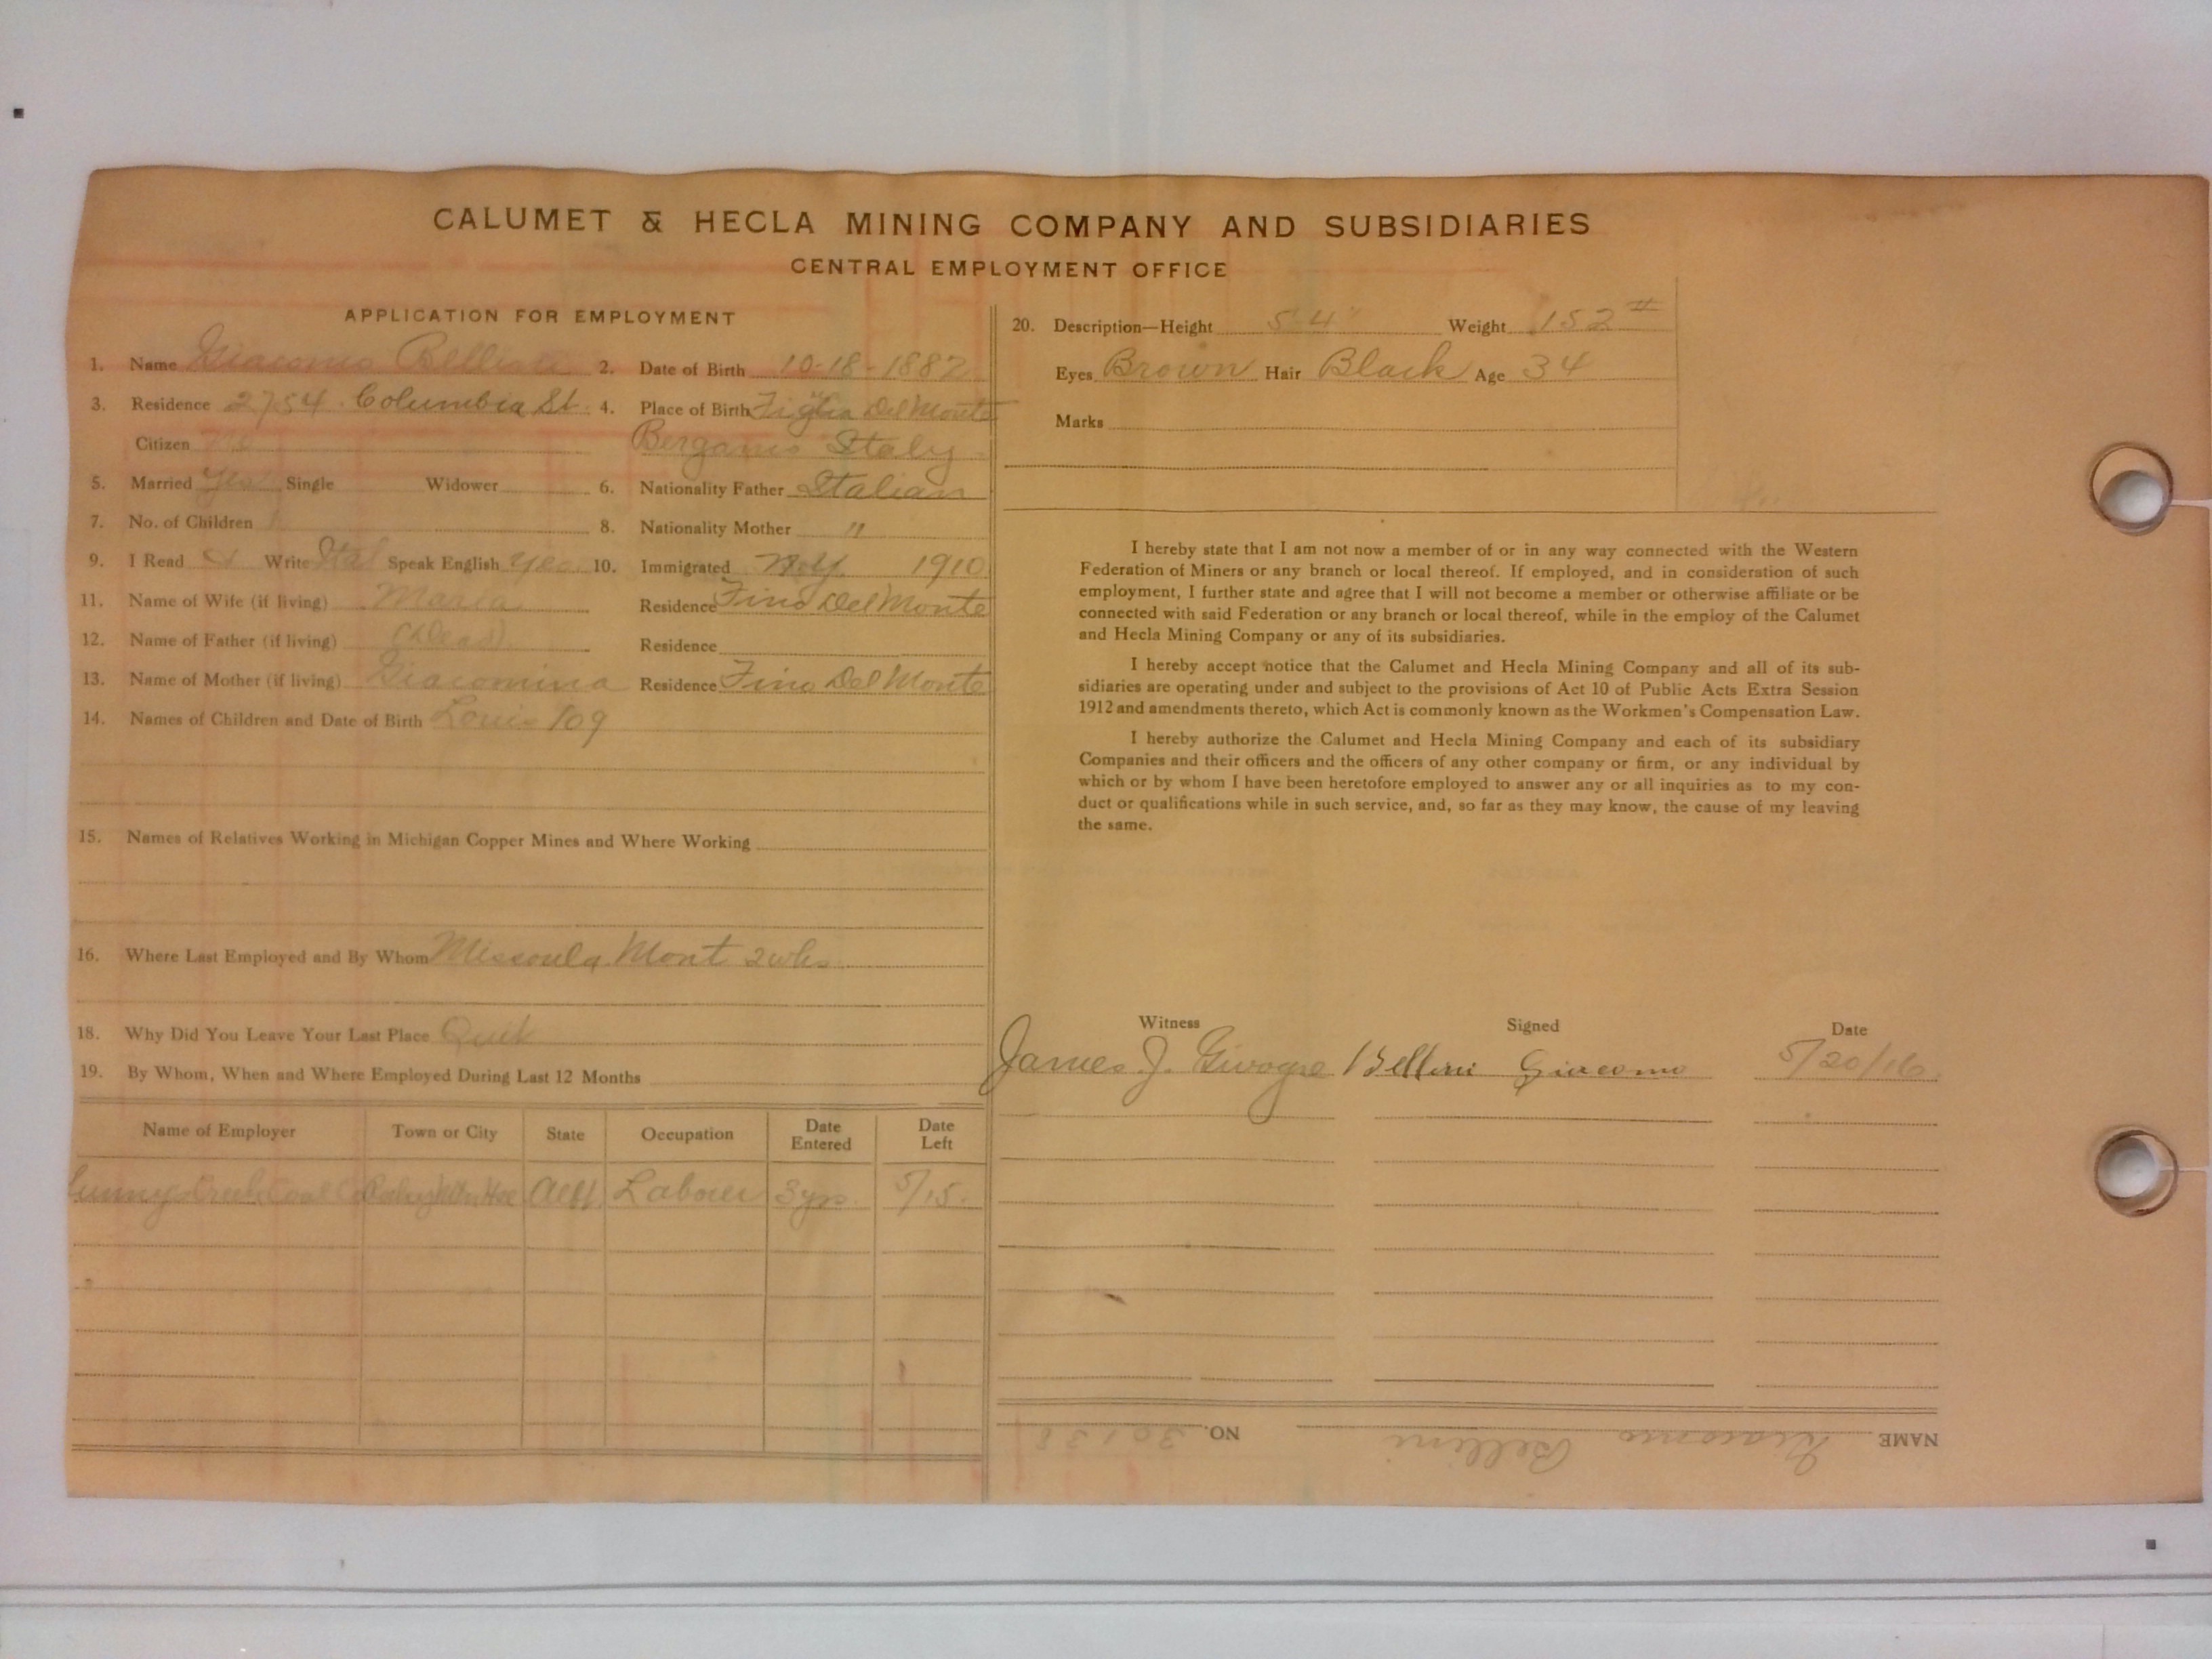 CALUMET & HECLA MINING COMPANY AND SUBSIDIARIES
CENTRAL EMPLOYMENT OFFICE
APPLICATION FOR EMPLOYMENT
1. Name Giacomo Bellini 2. Date of Birth 10-18-1882
3. Residence 2754 Columbia St. 4. Place of Birth Del Monte
Citizen No Bergamo Italy
5. Married Yes Single Widower 6. Nationality Father Italian
7. No. of Children 1 8. Nationality Mother "
9. I Read & Write Ital Speak English Yes 10. Immigrated N.Y. 1910
11. Name of Wife (if living) Maria Residence Fino Del Monte
12. Name of Father (if living) (Dead) Residence
13. Name of Mother (if living) Giacomina Residence Fino Del Monte
14. Names of Children and Date of Birth Louis '09
15. Names of Relatives Working in Michigan Copper Mines and Where Working
16. Where Last Employed and By Whom Missoula Mont 2 wks
18. Why Did You Leave Your Last Place Quit
19. By Whom, When and Where Employed During Last 12 Months
Name of Employer Town or City State Occupation Date Entered Date Left
Creek Coal Co Laborer 3 yrs. 5/15.
20. Description—Height 5' 4" Weight 152 #
Eyes Brown Hair Black Age 34
Marks
I hereby state that I am not now a member of or in any way connected with the Western
Federation of Miners or any branch or local thereof. If employed, and in consideration of such
employment, I further state and agree that I will not become a member or otherwise affiliate or be
connected with said Federation or any branch or local thereof, while in the employ of the Calumet
and Hecla Mining Company or any of its subsidiaries.
I hereby accept notice that the Calumet and Hecla Mining Company and all of its sub-
sidiaries are operating under and subject to the provisions of Act 10 of Public Acts Extra Session
1912 and amendments thereto, which Act is commonly known as the Workmen's Compensation Law.
I hereby authorize the Calumet and Hecla Mining Company and each of its subsidiary
Companies and their officers and the officers of any other company or firm, or any individual by
which or by whom I have been heretofore employed to answer any or all inquiries as to my con-
duct or qualifications while in such service, and, so far as they may know, the cause of my leaving
the same.
Witness Signed Date
James J. Bellini Giacomo 5/20/16.
NAME Giacomo Bellini NO. 30138